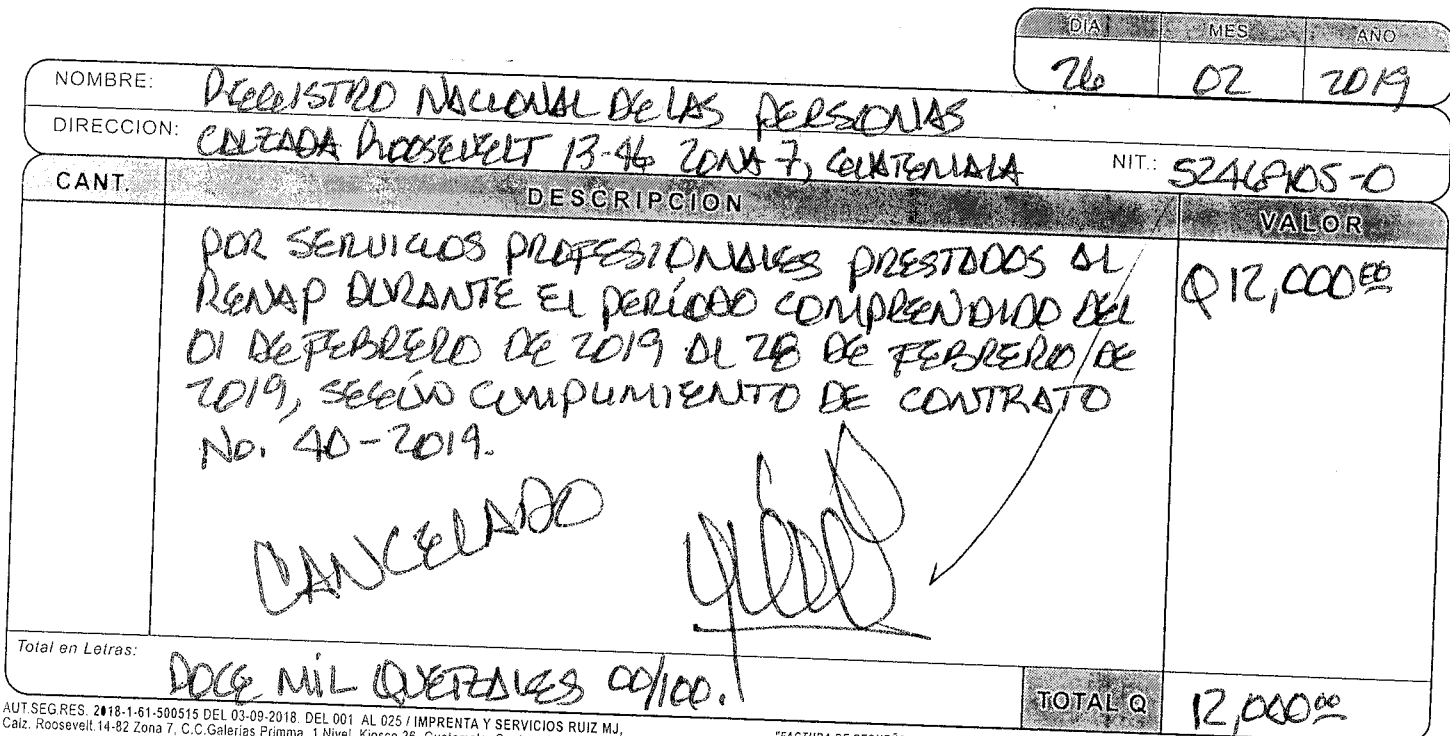 DIA MES AÑO
26 02 2019
NOMBRE: REGISTRO NACIONAL DE LAS PERSONAS
DIRECCION: CALZADA ROOSEVELT 13-46 ZONA 7, GUATEMALA NIT.:
CANT. DESCRIPCION VALOR
POR SERVICIOS PROFESIONALES PRESTADOS AL Q 12,000.00
RENAP DURANTE EL PERÍODO COMPRENDIDO DEL
01 DE FEBRERO DE 2019 AL 28 DE FEBRERO DE
2019, SEGÚN CUMPLIMIENTO DE CONTRATO
No. 40-2019.
CANCELADO
Total en Letras: DOCE MIL QUETZALES 00/100.
TOTAL Q 12,000.00
AUT.SEG.RES. 2018-1-61-500515 DEL 03-09-2018. DEL 001 AL 025 / IMPRENTA Y SERVICIOS RUIZ MJ,
Calz. Roosevelt.14-82 Zona 7, C.C.Galerías Primma, 1 Nivel, Kiosco